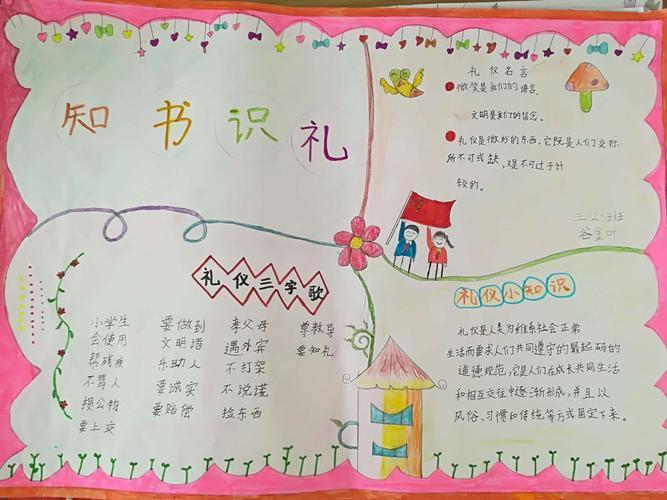 知书识礼
礼仪名言
微笑是我们的语言,
文明是我们的信念。
礼仪是微妙的东西,它既是人们交际
所不可或缺,又是不可过于计
较的。
三(2)班
礼仪三字歌
小学生 要做到 孝父母 尊教导
会使用 文明语 遇外宾 要知礼
帮残疾 乐助人 不打架
不骂人 要诚实 不说谎
损公物 要赔偿 捡东西
要上交
礼仪小知识
礼仪是人类为维系社会正常
生活而要求人们共同遵守的最起码的
道德规范,它是人们在成长共同生活
和相互交往中逐渐形成,并且以
风俗、习惯和传统等方式固定下来。